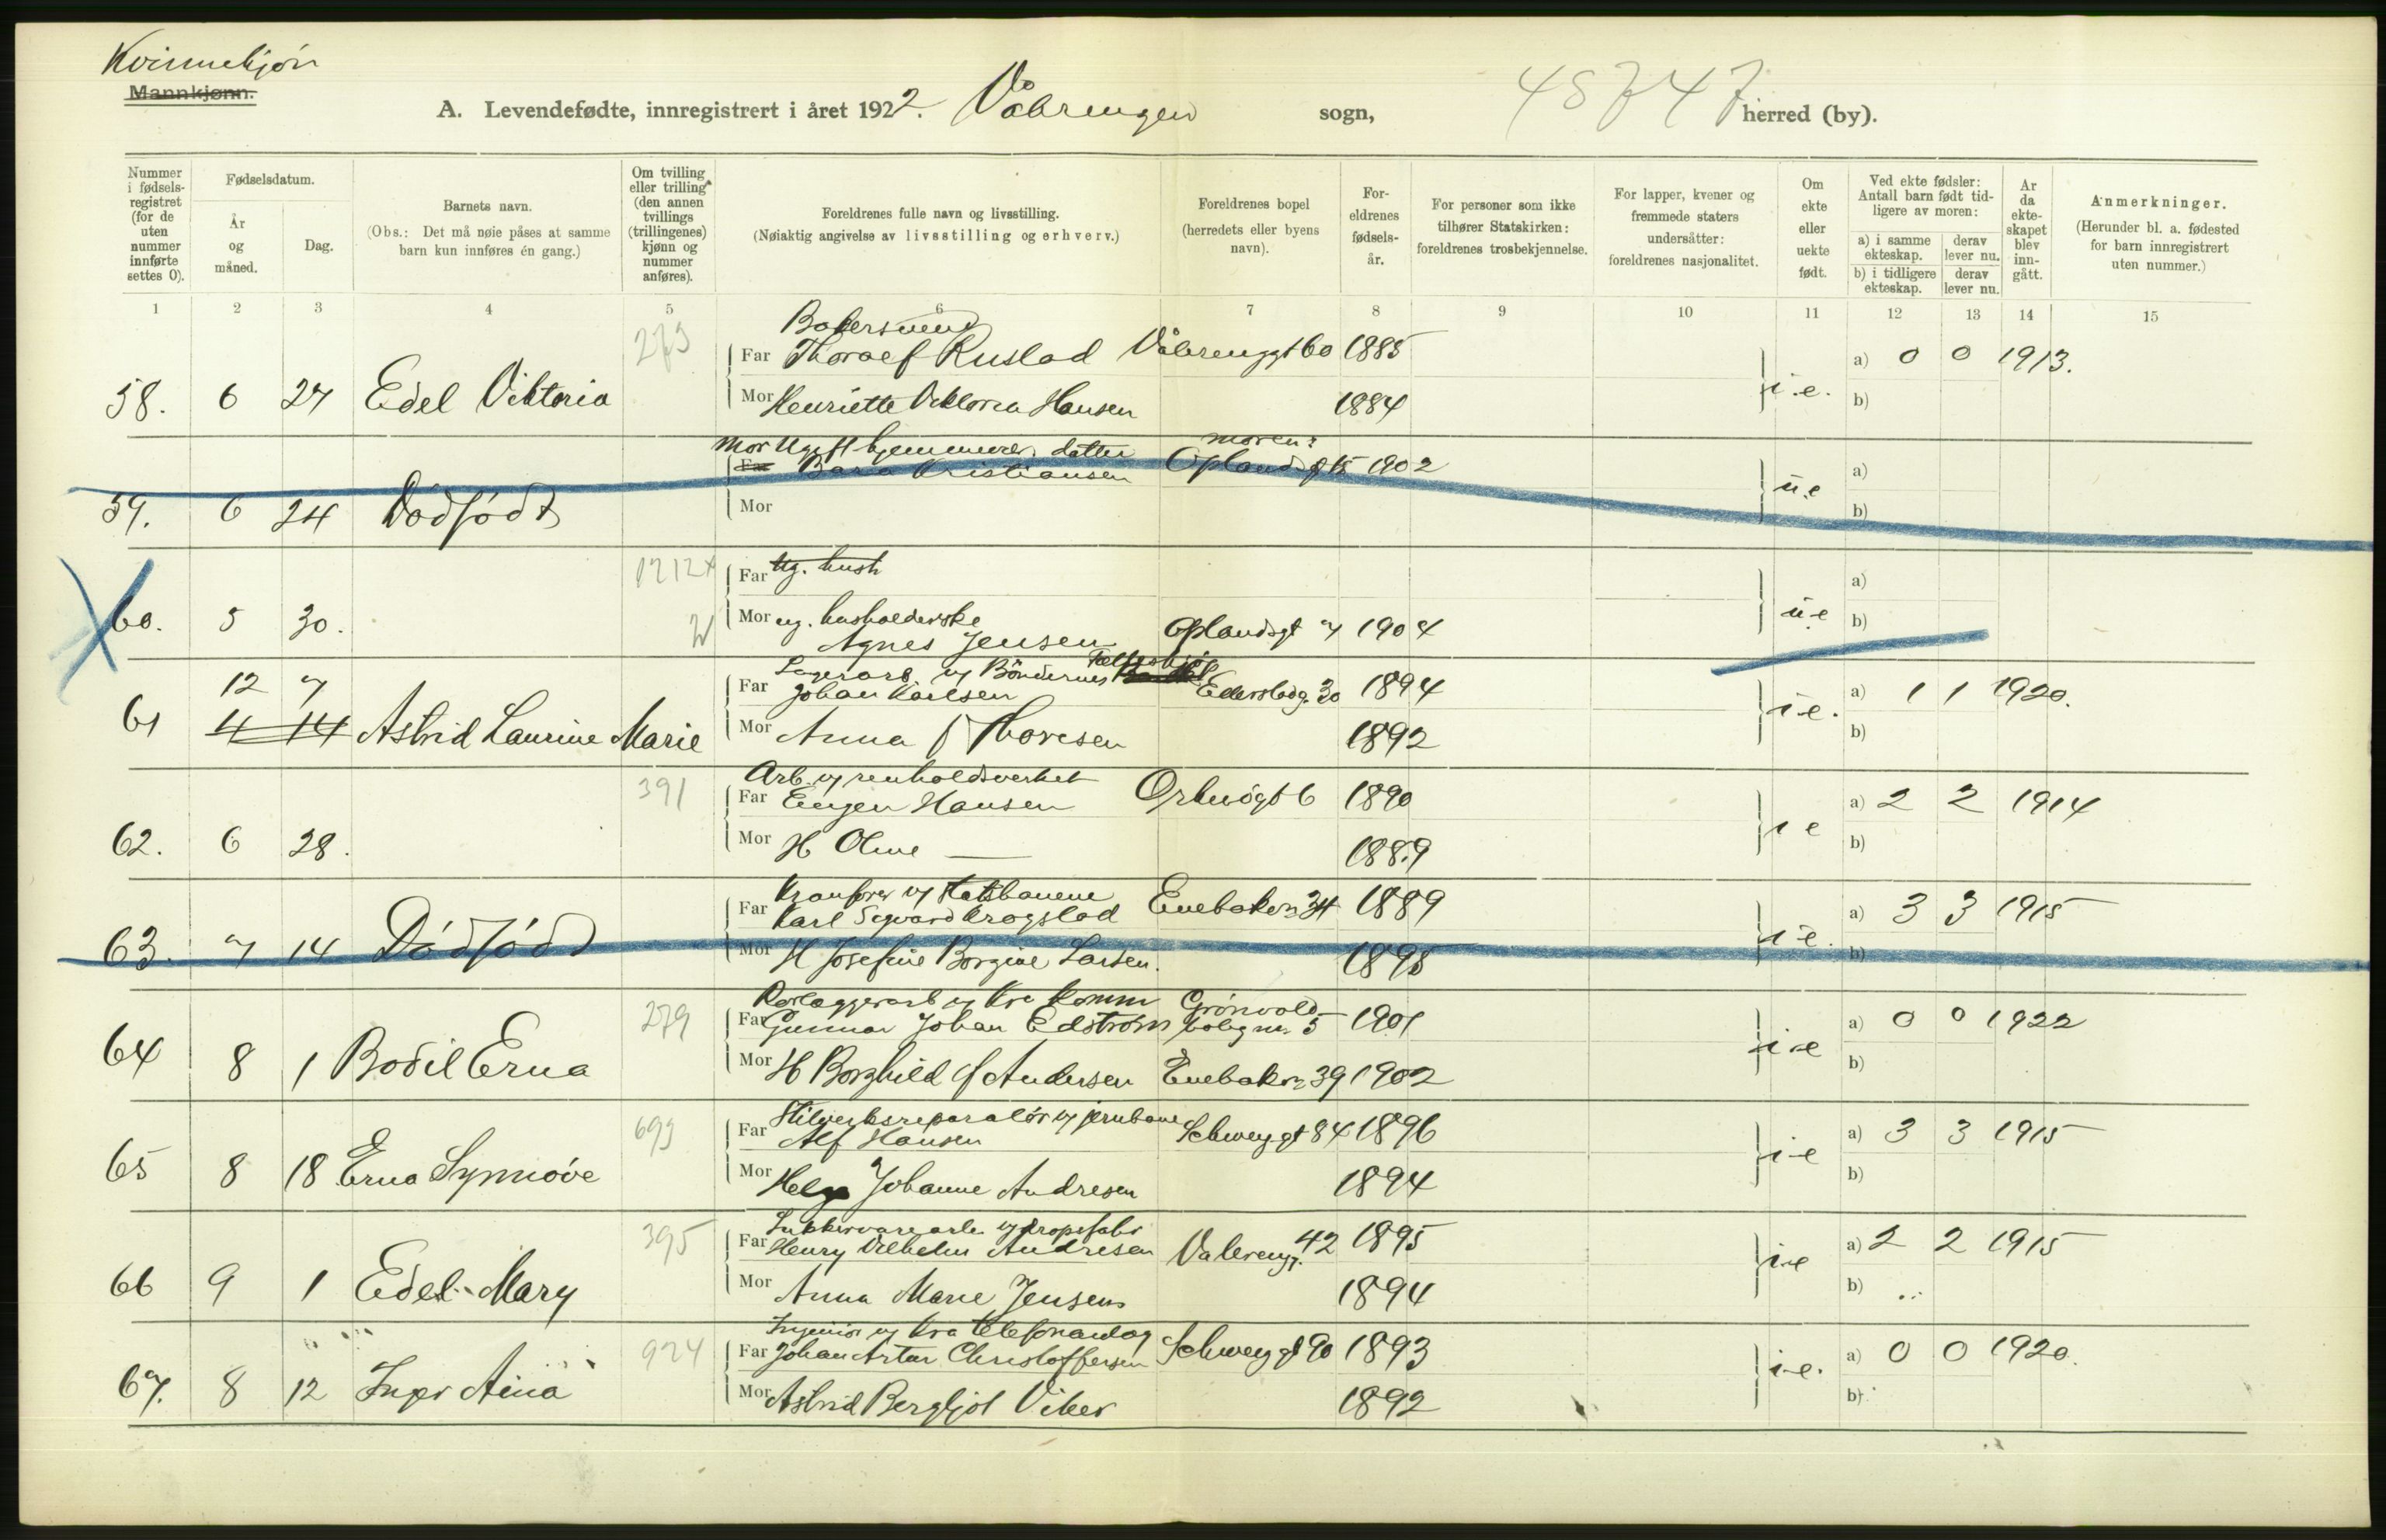 Kvinnekjön
Mannkjønn.
A. Levendefødte, innregistrert i året 1922. Vålerengen sogn, herred (by).
Nummer i fødsels-registret (for de uten nummer innførte settes 0).
Fødselsdatum.
År og måned.
Dag.
Barnets navn.
(Obs.: Det må nøie påses at samme barn kun innføres én gang.)
Om tvilling eller trilling (den annen tvillings (trillingenes) kjønn og nummer anføres).
Foreldrenes fulle navn og livsstilling.
(Nøiaktig angivelse av livsstilling og erhverv.)
Foreldrenes bopel (herredets eller byens navn).
For-eldrenes fødsels-år.
For personer som ikke tilhører Statskirken: foreldrenes trosbekjennelse.
For lapper, kvener og fremmede staters undersåtter: foreldrenes nasjonalitet.
Om ekte eller uekte født.
Ved ekte fødsler: Antall barn født tid-ligere av moren:
a) i samme ekteskap.
derav lever nu.
b) i tidligere ekteskap.
derav lever nu.
År da ekte-skapet blev inn-gått.
Anmerkninger.
(Herunder bl. a. fødested for barn innregistrert uten nummer.)
1 2 3 4 5 6 7 8 9 10 11 12 13 14 15
273 Bakersvend
Far Thoralf Rustad Vålerenggt 60 1885 a) 0 0 1913.
58. 6 27 Edel Viktoria Mor Henriette Viktoria Hansen 1884 i.e. b)
Mor Ugift hjemmev. datter moren:
Far Kristiansen Oplandsgt 15 1902 a)
59. 6 24 Dödfödt Mor u.e b)
Far ug. hush a)
60. 5 30. Mor ug. husholderske
Agnes Jensen Oplandsgt 7 1904 u.e b)
Lagerarb. v/ Böndernes
12 7 Far Johan Karlsen 30 1894 a) 1 1 1920.
61 4 14 Astrid Laurine Marie Mor Anna f Thoresen 1892 i.e. b)
391 Arb. v/ renholdsverket
Far Eugen Hansen 6 1890 a) 2 2 1914
62. 6 28. Mor H Oline — 1889 i e b)
Kranförer v/ Statsbanene
Far Karl Sigvard Krogstad Enebakv. 34 1889 a) 3 3 1915
63. 7 14 Dödfödt Mor H Josefine Borgine Larsen. 1895 i.e. b)
279 Rørlæggerarb v/ Kra komm Grönvold
Far Gunnar Johan Edström bolig nr. 5 1901 a) 0 0 1922
64 8 1 Bodil Erna Mor H Borghild f Andersen Enebakv. 39 1902 i-e b)
693 Stilverksreparatör v/ jernbane
Far Alf Hansen Schweigt 84 1896 a) 3 3 1915
65 8 18 Erna Synnöve Mor Helga Johanne Andresen 1894 i-e b)
395 Sukkervarearb. v/ dropsfabr
Far Henry Vilhelm Andresen Valerengg. 42 1895 a) 2 2 1915
66 9 1 Edel Mary Mor Anna Marie Jensen 1894 i-e b)
924 Ingeniör v/ Kra telefonanlæg
Far Johan Artur Christoffersen Schweiggt 90 1893 a) 0 0 1920.
67. 8 12 Inger Aina Mor Astrid Bergljot Viker 1892 i-e. b)